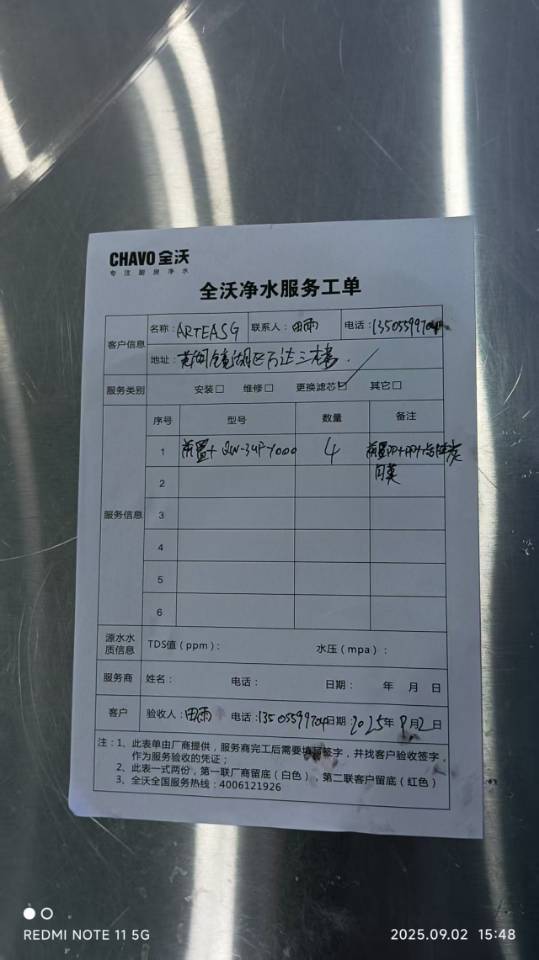 CHAVO 全沃
专注厨房净水
全沃净水服务工单
客户信息
名称: ARTEASG 联系人: 田雨 电话:
地址: 镜湖区万达三楼
服务类别 安装□ 维修□ 更换滤芯☑ 其它□
服务信息
序号 型号 数量 备注
1 前置+ QW-3UF-1000 4
2
3
4
5
6
源水水质信息 TDS值（ppm）： 水压（mpa）：
服务商 姓名： 电话： 日期： 年 月 日
客户 验收人: 田雨 电话: 日期 2025年 月2日
注：1、此表单由厂商提供，服务商完工后需要填写签字，并找客户验收签字，
作为服务验收的凭证；
2、此表一式两份，第一联厂商留底（白色） 第二联客户留底（红色）
3、全沃全国服务热线：4006121926
REDMI NOTE 11 5G
2025.09.02 15:48